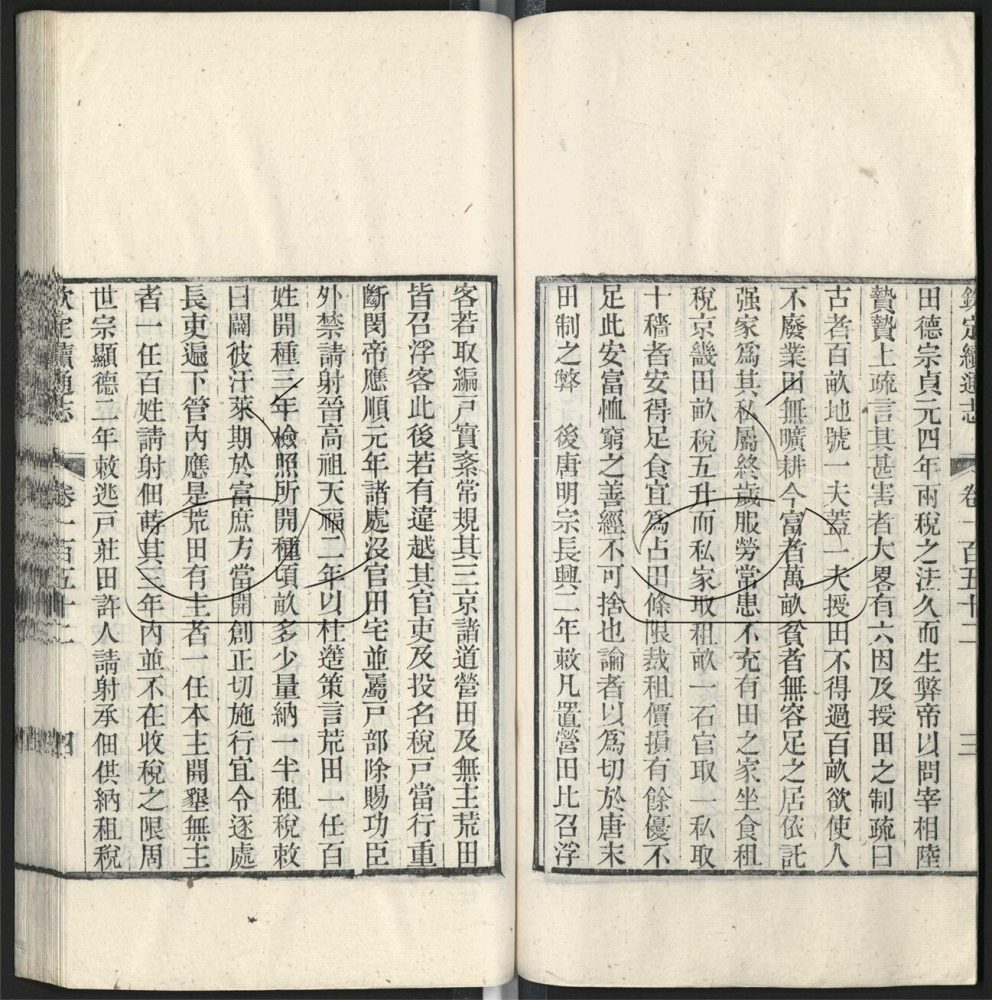 欽定續通志 卷一百五十二 三
田德宗貞元四年兩稅之法久而生弊帝以問宰相陸
贄贄上疏言其甚害者大畧有六因及授田之制疏曰
古者百畝地號一夫蓋一夫授田不得過百畝欲使人
不廢業田無曠耕今富者萬畝貧者無容足之居依託
强家爲其私屬終歲服勞常患不充有田之家坐食租
稅京畿田畝稅五升而私家取租畝一石官取一私取
十穡者安得足食宜爲占田條限裁租價損有餘優不
足此安富恤窮之善經不可捨也論者以爲切於唐末
田制之弊 後唐明宗長興二年敕凡置營田比召浮
客若取編戸實紊常規其三京諸道營田及無主荒田
皆召浮客此後若有違越其官吏及投名稅戸當行重
斷閔帝應順元年諸處沒官田宅並屬戸部除賜功臣
外禁請射晉高祖天福二年以杜簉策言荒田一任百
姓開種三年檢照所開種頃畝多少量納一半租稅敕
曰闢彼汙萊期於富庶方當開創正切施行宜令逐處
長吏遍下管內應是荒田有主者一任本主開墾無主
者一任百姓請射佃蒔其三年內並不在收稅之限周
世宗顯德二年敕逃戸莊田許人請射承佃供納租稅
欽定續通志 卷一百五十二 四